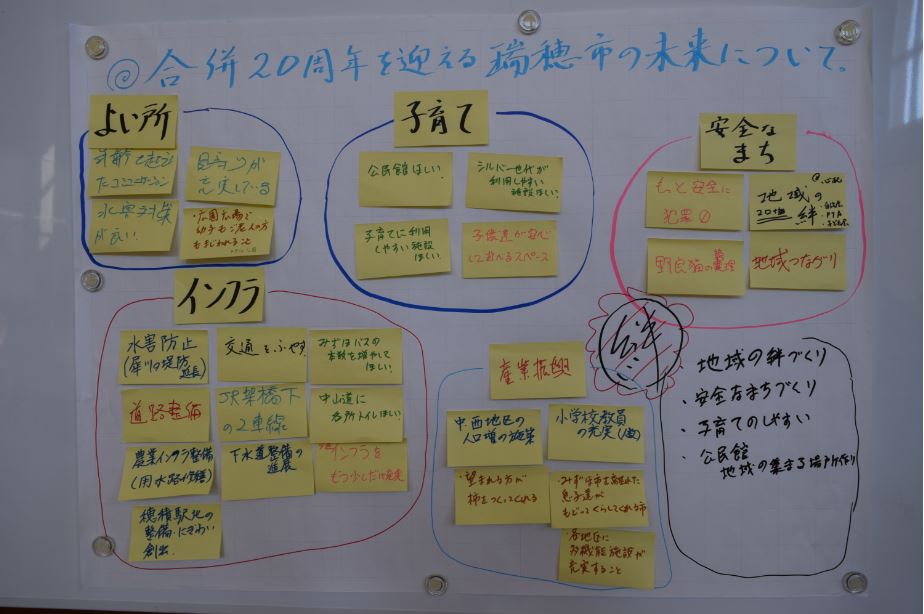 ◎合併20周年を迎える瑞穂市の未来について。
よい所
たコミュニケーション
見守りが
充実している
水害対策
が良い
・広園広場で
幼子も老人の方
もまじわれること
子育て
公民館ほしい
シルバー世代が
利用しやすい
施設ほしい
子育てに利用
しやすい施設
ほしい
子供達が安心
して遊べるスペース
安全な
まち
もっと安全に
犯罪0
地域の
絆
自治会
PTA
野良猫の管理
地域つながり
インフラ
水害防止
(犀川の堤防
延長)
交通をふやす
みずほバスの
本数を増やして
ほしい
道路整備
JR架橋下
の2車線
中山道に
名所トイレほしい
農業インフラ整備
(用水路
下水道整備の
進展
インフラを
もう少しだけ充実
穂積駅地の
整備・にぎわい
創出
絆
産業振興
牛西地区の
人口増の施策
小学校教員
の充実
・望まれる方が
柿をつくってくれる
・みずほ市を離れた
息子達が
もどってくらしてくれる市
・各地区に
多機能施設が
充実すること
地域の絆づくり
・安全なまちづくり
・子育てのしやすい
・公民館
地域の集まる場所作り